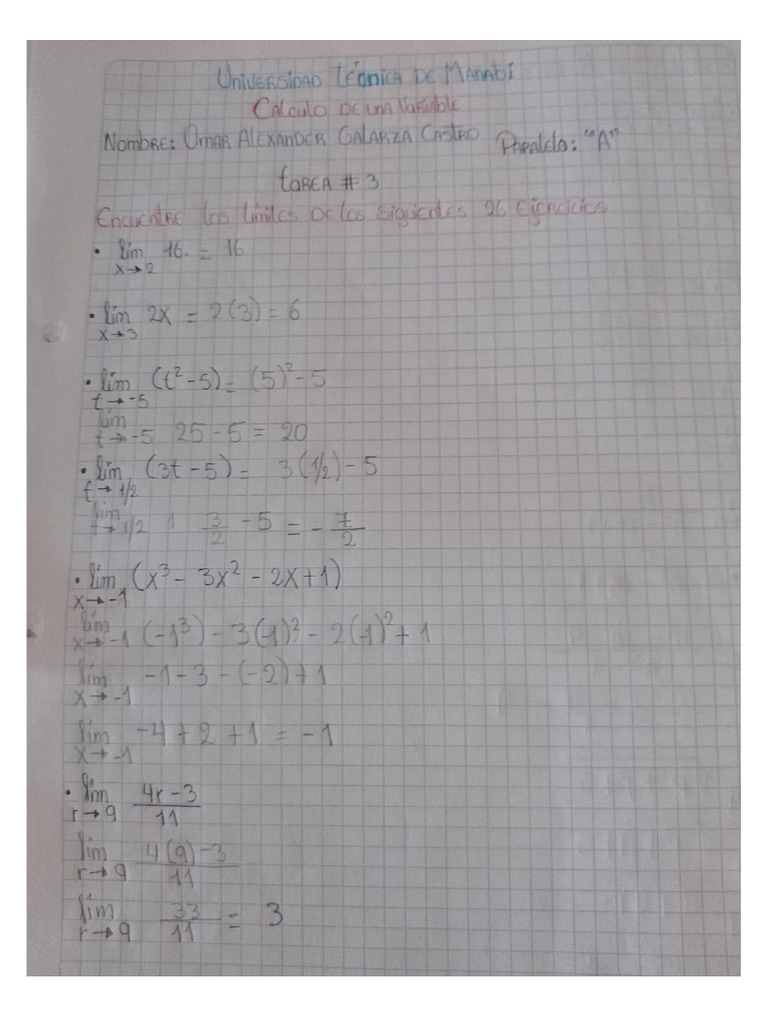 Universidad Técnica de Manabí
Calculo de una Variable
Nombre: Omar Alexander Galarza Castro Paralelo: "A"
tarea # 3
Encuentre los límites de los siguientes 26 ejercicios
• lím 16 = 16
x→2
• lím 2x = 2(3) = 6
x→3
• lím (t² - 5) = (5)² - 5
t→-5
lím
t→-5 25 - 5 = 20
• lím (3t - 5) = 3(1/2) - 5
t→1/2
lím
t→1/2 3/2 - 5 = - 7/2
• lím (x³ - 3x² - 2x + 1)
x→-1
lím
x→-1 (-1³) - 3(-1)² - 2(-1)² + 1
lím -1 - 3 - (-2) + 1
x→-1
lím -4 + 2 + 1 = -1
x→-1
• lím 4r - 3
r→9 11
lím 4(9) - 3
r→9 11
lím 33
r→9 11 = 3